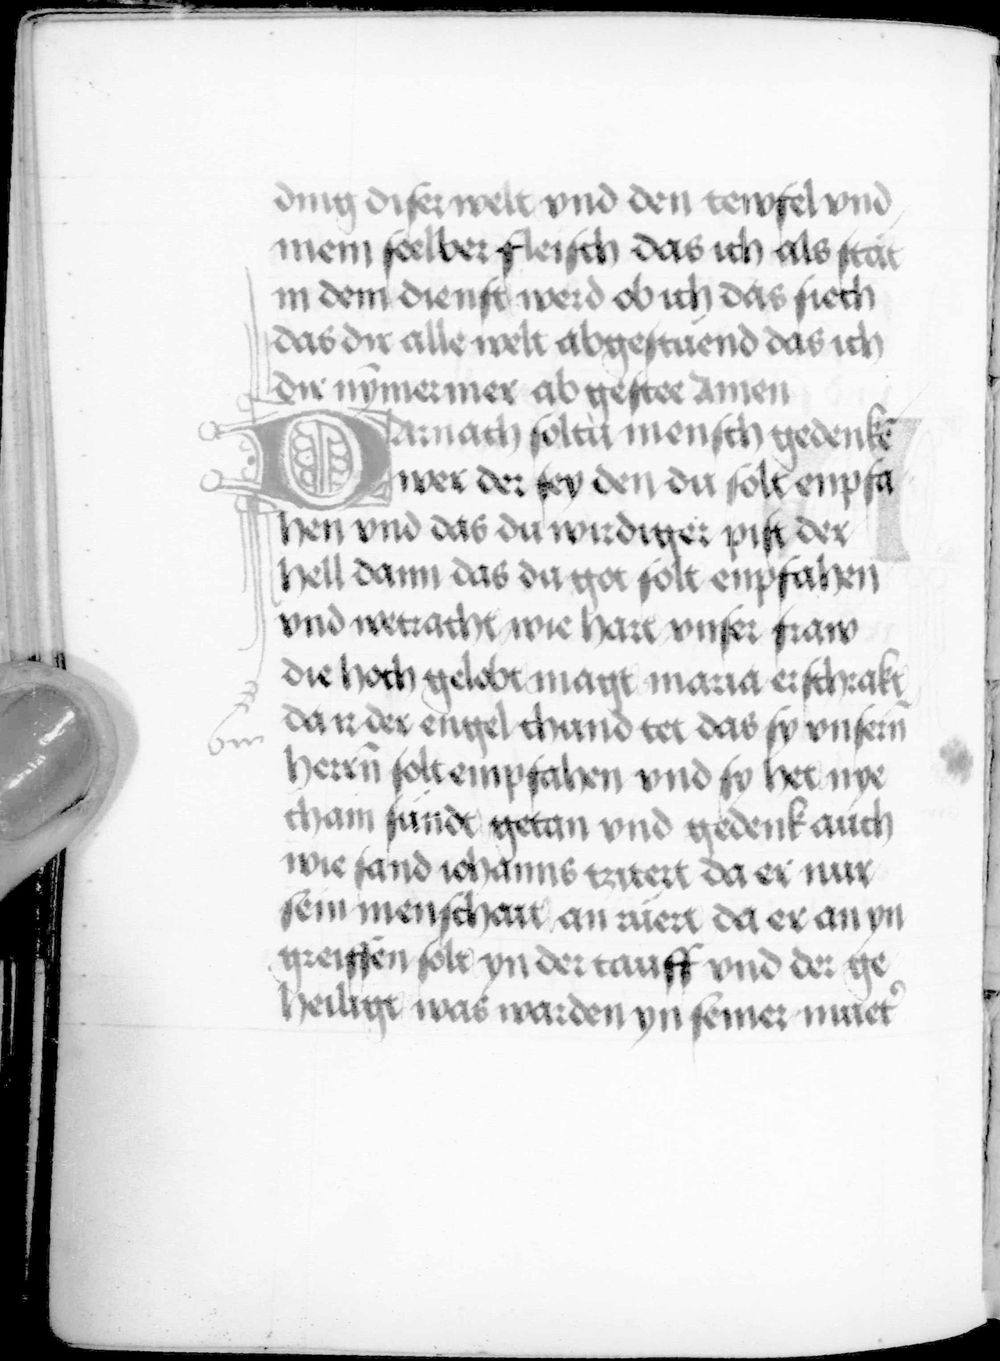 ding diser welt vnd den tewfel vnd
mein seelber fleisch das ich als stät
in dem dienst werd ob ich das siech
das dir alle welt abgestüend das ich
dir nymermer ab gestee Amen
Darnach soltu mensch gedenkē
wer der sey den du solt enpfa
hen vnd das du wirdiger pist der
hell dann das du got solt enpfahen
vnd wetracht wie hart vnser fraw
die hoch gelobt magt maria erschrakt
da ir der engel chund tet das sy vnsern̄
herrn̄ solt empfahen vnd sy het nye
chain sündt getan vnd gedenk auch
wie sand iohanns tzitert da er nur
sein menschait an rüert da er an yn
greiffen solt yn der tauff vnd der ge
heiligt was warden yn seiner muet⁹